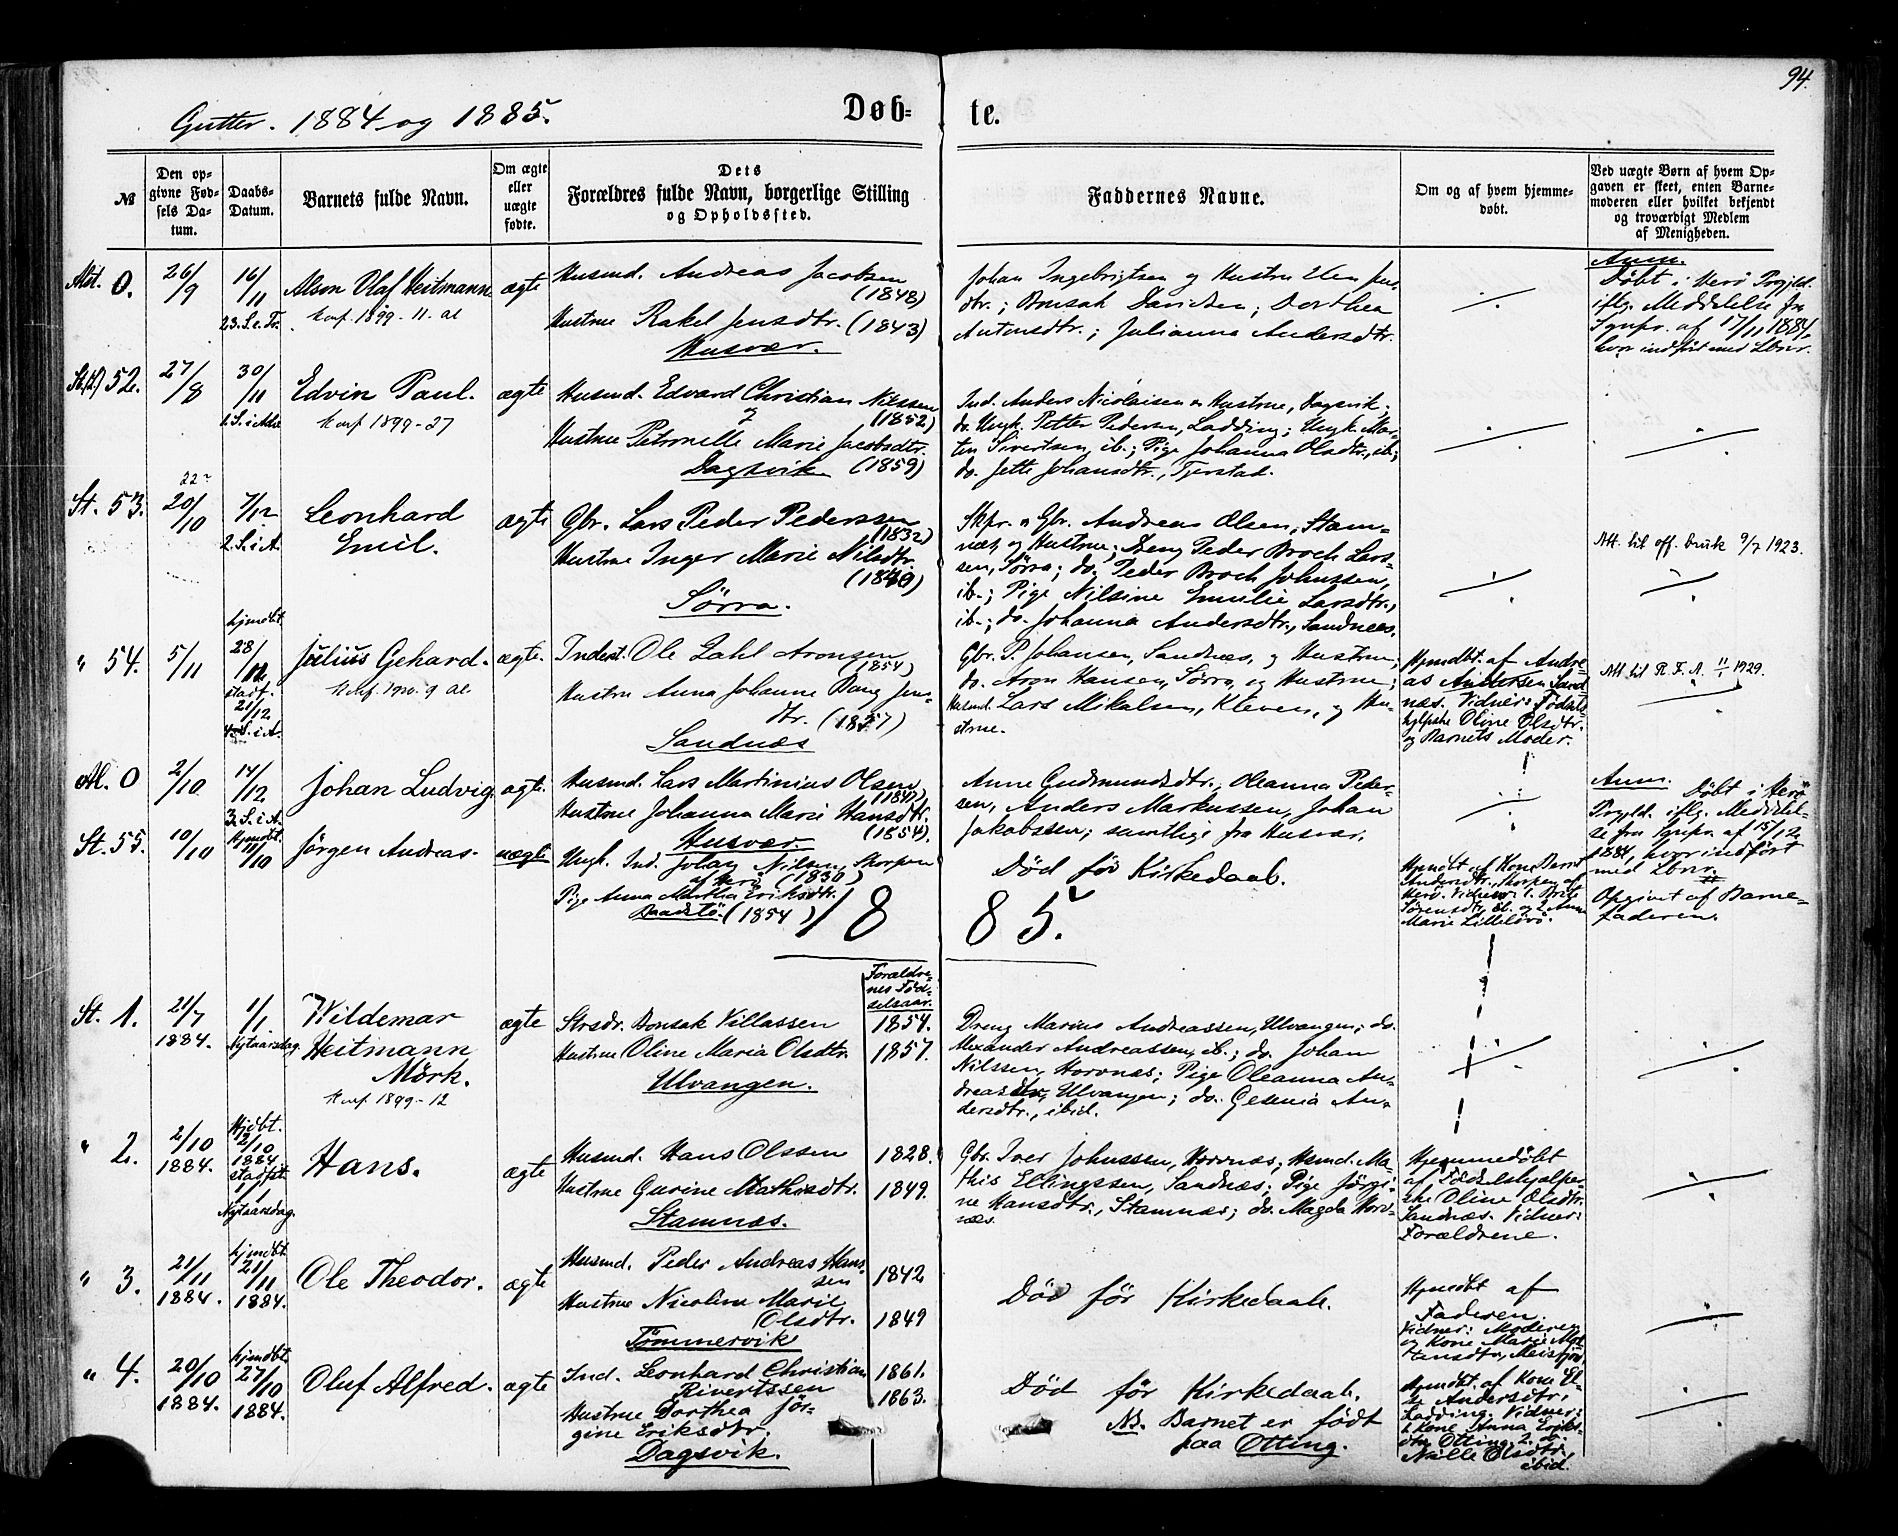 94.
Gutter. 1884 og 1885.
Døb-
te.
№
Den op-
givne Fød-
sels Da-
tum.
Daabs-
Datum.
Barnets fulde Navn.
Om ægte
eller
uægte
fødte.
Dets
Forældres fulde Navn, borgerlige Stilling
og Opholdssted.
Faddernes Navne.
Om og af hvem hjemme-
døbt.
Ved uægte Børn af hvem Op-
gaven er skeet, enten Barne-
moderen eller hvilket bekjendt
og troværdigt Medlem
af Menigheden.
0.
26/9
16/11
23. S. e. Tr.
Alson Olaf Heitmann
Konf. 1899-11. al
ægte
Husmd. Andreas Jacobsen
(1848)
Hustrue Rakel Jensdtr. (1843)
Husvær.
Johan Ingebrigtsen og Hustru Elen Jens-
dtr.; Bonsak Davidsen; Dorthea
Antonsdtr.; Julianna Andersdtr.
Anm.
Døbt i Herø Prgjld.
iflg. Meddelse fra
Sgnpr. af 17/11 1884,
hvor indført med Lbnr.
52.
27/8
30/11
1. S. i Adv.
Edvin Paul.
Konf 1899-27
ægte
Husmd. Edvard Christian Nilssen
og (1852)
Hustrue Petronelle Marie Jacobsdtr.
Dagsvik (1859)
Ind. Anders Nicolaisen og Hustrue, Dagsvik;
do. Ungk. Petter Pedersen, Ladding; Ungk. Mor-
ten Sivertsen, ib.; Pige Johanna Olsdtr., ib.;
do. Jette Johansdtr., Tjerstad.
St. 53.
22
20/10
7/12
2. S. i A.
Leonhard
Emil.
ægte
Gbr. Lars Peder Pederssen
(1832)
Hustrue Inger Marie Nilsdtr.
(1840)
Sørra.
Skpr. og Gbr. Andreas Olsen, Stam-
næs, og Hustrue; Dreng Peder Broch Lars-
sen, Sørra; do. Peder Broch Johnssen,
ib.; Pige Nilsine Emilie Larsdtr.,
ib.; do. Johanna Andersdtr., Sandnæs.
Att. til off. bruk 9/7 1923.
" 54.
5/11
hjmdbt.
28/11
stadf.
21/12
4. S. i A.
Julius Gehard.
Konf. 1900. 9 al
ægte.
Inderst. Ole Zahl Aronsen
(1854)
Hustru Anna Johanne Bang Jens-
dtr. (1857)
Sandnæs
Gbr. P. Johansen, Sandnæs, og Hustrue;
do. Aron Hansen, Sørra, og Hustrue;
Husmd. Lars Mikalsen, Kleven, og Hu-
strue.
Hjmdbt. af Andre-
as Andersen Sand-
næs. Vidner: Fødsels-
hjelpske Oline Olsdtr.
og Barnets Moder.
Att til R. F. A. 11/1 1929.
Al. 0
2/10
14/12
3. S. i A.
Johan Ludvig.
ægte.
Husmd. Lars Martinius Olsen
(1847)
Hustrue Johanna Marie Hansdtr.
(1854).
Husvær.
Anne Gudmundsdtr., Oleanna Peder-
sen, Anders Markussen, Johan
Jakobssen; samtlige fra Husvær.
Anm. Døbt i Herø
Prgjld. iflg. Meddelel-
se fra Sgnpr. af 15/12
1884, hvor indført
med Lbnr.
St. 55.
10/10
Hjmdbt.
11/10
Jörgen Andreas.
uægte
Ungk. Ind. Johan Nilsen, Skorpen
af Herø (1836)
Pige Anna Martha Eriksdtr.
(1854)
Död för Kirkedaab.
Hjmdbt af Kone Berit
Andersdtr. Skorpen af
Herø. Vidner: 1. Brit
Sørensdtr. ib. og 2. Anne
Marie Lilleløvø.
Opgivet af Barne-
faderen.
18
85.
Forældre-
nes Fød-
selsaar.
St. 1.
21/7
1884.
1/1
Nytaarsdag.
Wildemar
Heitmann
Mörk.
Konf 1899-12
ægte
Strsdr. Bonsak Villassen
1854.
Hustrue Oline Maria Olsdtr.
1857.
Ulvangen.
Dreng Marius Andreassen, Ulvangen; do.
Alexander Andreassen, ib.; do. Johan
Nilssen, Hovnæs; Pige Oleanna An-
dreasdtr, Ulvangen; do. Gesenia An-
dersdtr., ibid.
" 2.
2/10
1884.
Hjdbt.
2/10
1884
stadfst.
1/1
Nytaarsdag.
Hans.
ægte
Husmd. Hans Olssen
1828.
Hustrue Gurine Mathisdtr.
1849.
Stamnæs.
Gbr. Iver Johnssen, Hovnæs; Hsmd. Ma-
this Ellingssen, Sandnæs; Pige Jörgi-
ne Hansdtr., Stamnæs; do. Magda Hov-
næs.
Hjemmedøbt
af Fødselshjælper-
ske Oline Olsdtr.
Sandnæs. Vidner:
Forældrene.
" 3.
21/11
1884.
hjmdbt
21/11
1884.
Ole Theodor.
ægte
Husmd. Peder Andreas Hans-
sen
1842
Hustrue Nicoline Marie
Olsdtr.
1849
Tömmervik
Död för Kirkedaab.
Hjmdbt af
Faderen.
Vidner: Moderen
og Kone Marie Mor-
tensdtr, Meisfjord
" 4.
20/10
1884.
hjmdbt.
27/10
1884.
Oluf Alfred.
ægte
Ind. Leonhard Christian
Sivertssen
1861.
1863.
Hustrue Dorthea Jör-
gine Eriksdtr.
Dagsvik.
Död för Kirkedaab.
NB. Barnet er født
paa Otting.
Hjmdbt. af Kone El-
se Andersdtr,
Ladding. Vidner:
1. Kone Anna Eriks-
dtr Otting, 2. do.
Nille Olsdtr.
ibid.